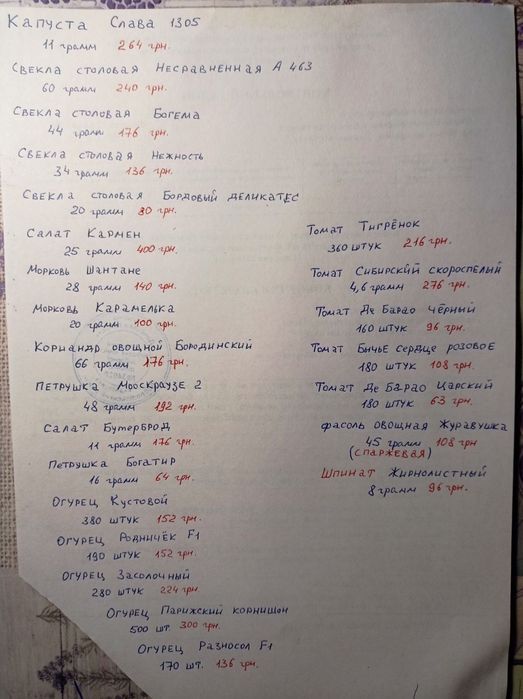 Капуста Слава 1305
11 грамм 264 грн.
Свекла столовая Несравненная А 463
60 грамм 240 грн.
Свекла столовая Богема
44 грамм 176 грн.
Свекла столовая Нежность
34 грамм 136 грн.
Свекла столовая Бордовый деликатес
20 грамм 80 грн.
Салат Кармен
25 грамм 400 грн.
Морковь Шантане
28 грамм 140 грн.
Морковь Карамелька
20 грамм 100 грн.
Кориандр овощной Бородинский
66 грамм 176 грн.
Петрушка Мооскраузе 2
48 грамм 192 грн.
Салат Бутерброд
11 грамм 176 грн.
Петрушка Богатир
16 грамм 64 грн.
Огурец Кустовой
380 штук 152 грн.
Огурец Родничёк F1
190 штук 152 грн.
Огурец Засолочный
280 штук 224 грн.
Огурец Парижский корнишон
500 шт. 300 грн.
Огурец Разносол F1
170 шт. 136 грн.
Томат Тигрёнок
360 штук 216 грн.
Томат Сибирский скороспелый
4,6 грамм 276 грн.
Томат Де Барао чёрный
160 штук 96 грн.
Томат Бычье сердце розовое
180 штук 108 грн.
Томат Де Барао Царский
180 штук 63 грн.
фасоль овощная Журавушка
45 грамм 108 грн
(спаржевая)
Шпинат Жирнолистный
8 грамм 96 грн.